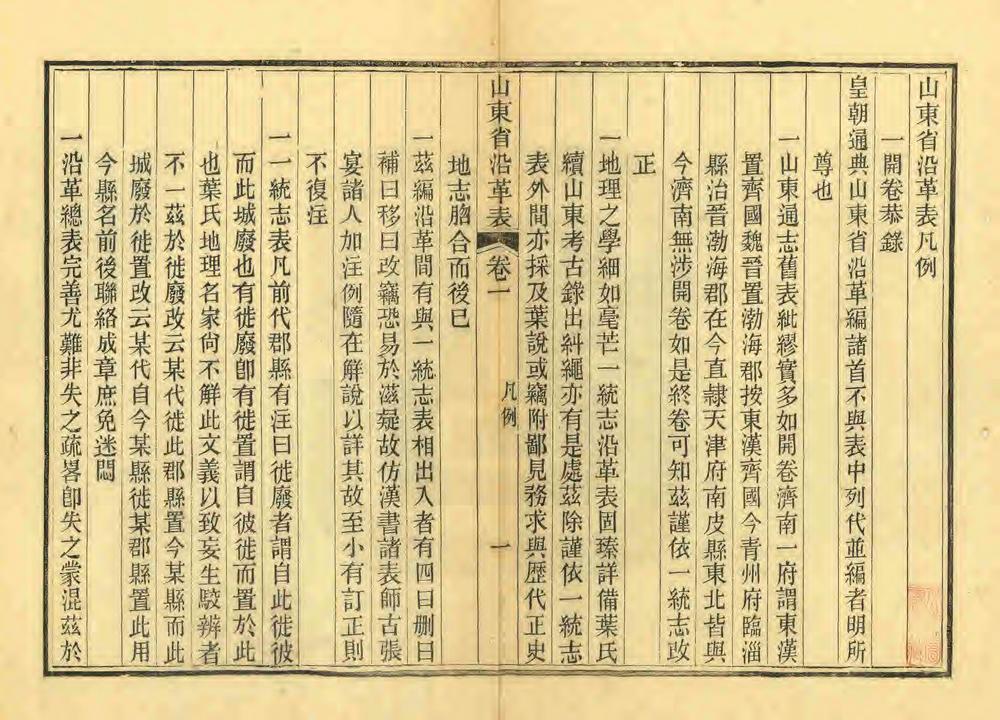 山東省沿革表凡例
一開卷恭錄
皇朝通典山東省沿革編諸首不與表中列代並編者明所
尊也
一山東通志舊表紕繆實多如開卷濟南一府謂東漢
置齊國魏晉置渤海郡按東漢齊國今青州府臨淄
縣治晉渤海郡在今直隸天津府南皮縣東北皆與
今濟南無涉開卷如是終卷可知茲謹依一統志改
正
一地理之學細如毫芒一統志沿革表固臻詳備葉氏
續山東考古錄出糾繩亦有是處茲除謹依一統志
表外間亦採及葉說或竊附鄙見務求與歷代正史
山東省沿革表 卷一 凡例 一
地志脗合而後已
一茲編沿革間有與一統志表相出入者有四曰刪曰
補曰移曰改竊恐易於滋疑故仿漢書諸表師古張
宴諸人加注例隨在解說以詳其故至小有訂正則
不復注
一一統志表凡前代郡縣有注曰徙廢者謂自此徙彼
而此城廢也有徙廢卽有徙置謂自彼徙而置於此
也葉氏地理名家尙不解此文義以致妄生駁辨者
不一茲於徙廢改云某代徙此郡縣置今某縣而此
城廢於徙置改云某代自今某縣徙某郡縣置此用
今縣名前後聯絡成章庶免迷悶
一沿革總表完善尤難非失之疏畧卽失之蒙混茲於